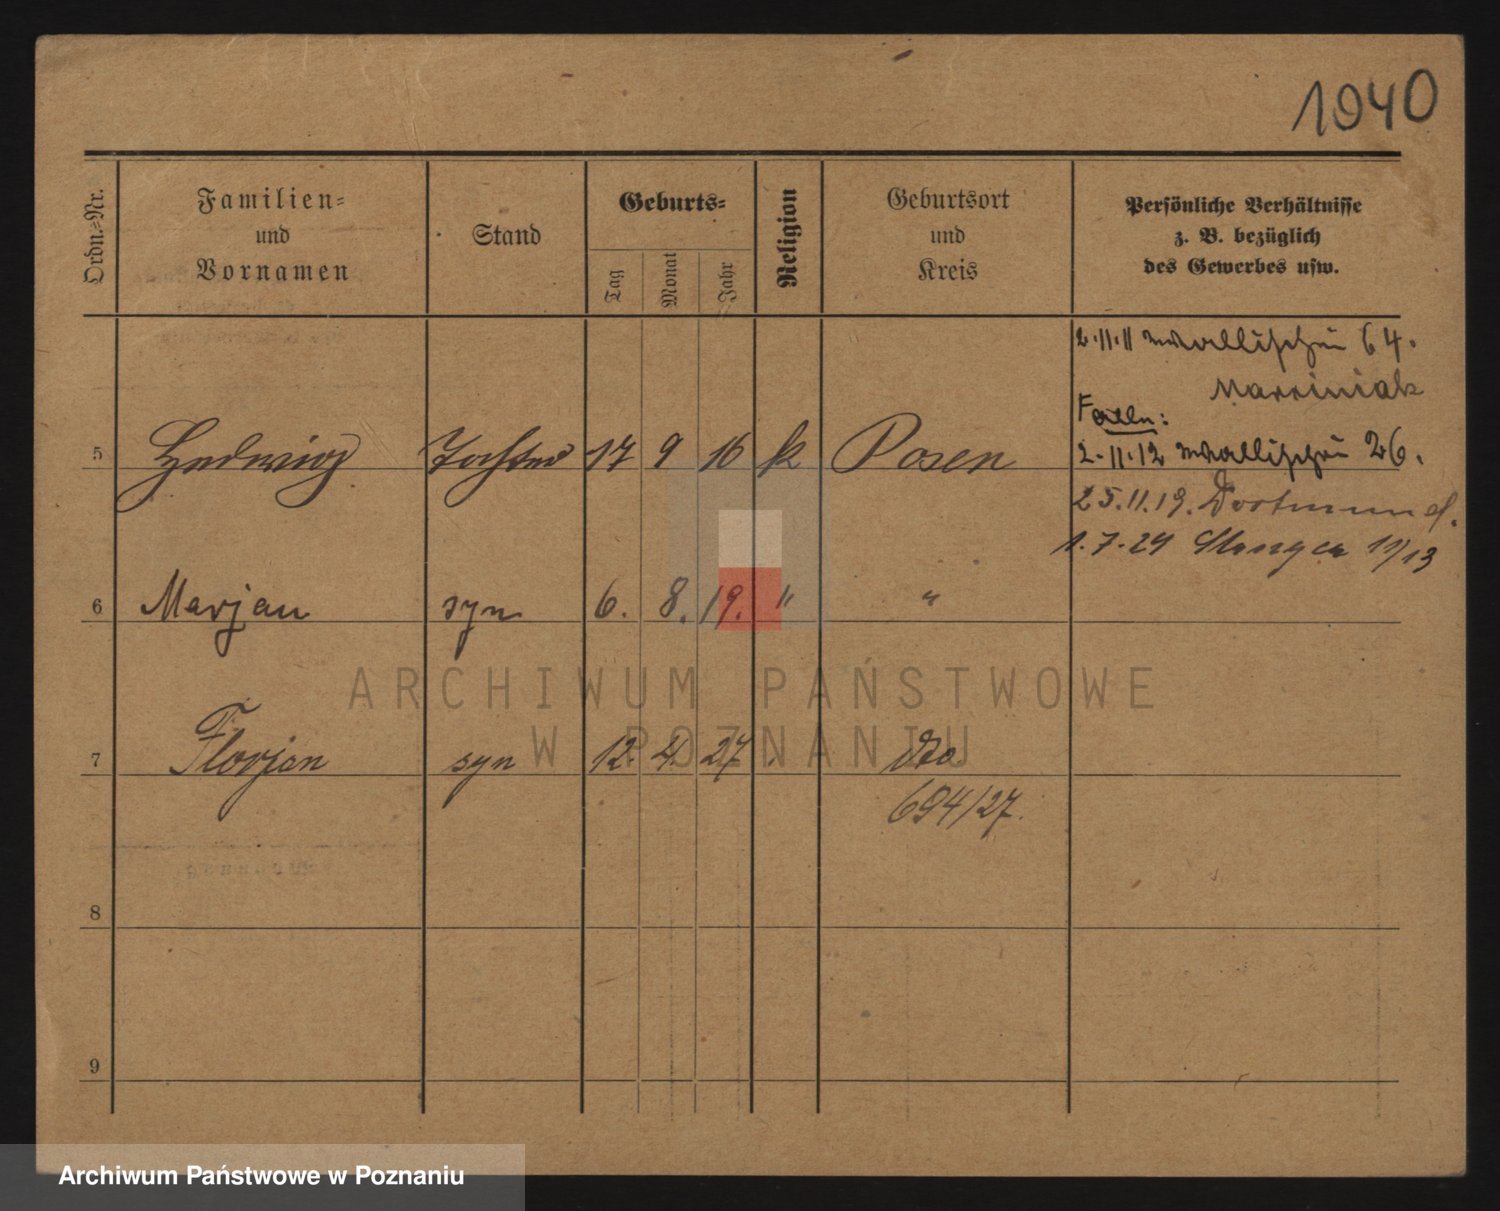 1940
Ordn.-Nr.
Familien-
und
Vornamen
Stand
Geburts-
Tag
Monat
Jahr
Religion
Geburtsort
und
Kreis
Persönliche Verhältnisse
z. B. bezüglich
des Gewerbes usw.
2.11.11 Wallischei 64.
Marciniak
5 Hedwig Tochter 17 9 16 k Posen
2.11.12 Wallischei 26.
25.11.19. Dortmund.
1.7.24 11/13
6 Marjan syn 6. 8. 19. " "
7 Florjan syn 12. 4. 27. dto
694/27.
8
9
ARCHIWUM PAŃSTWOWE
W POZNANIU
Archiwum Państwowe w Poznaniu